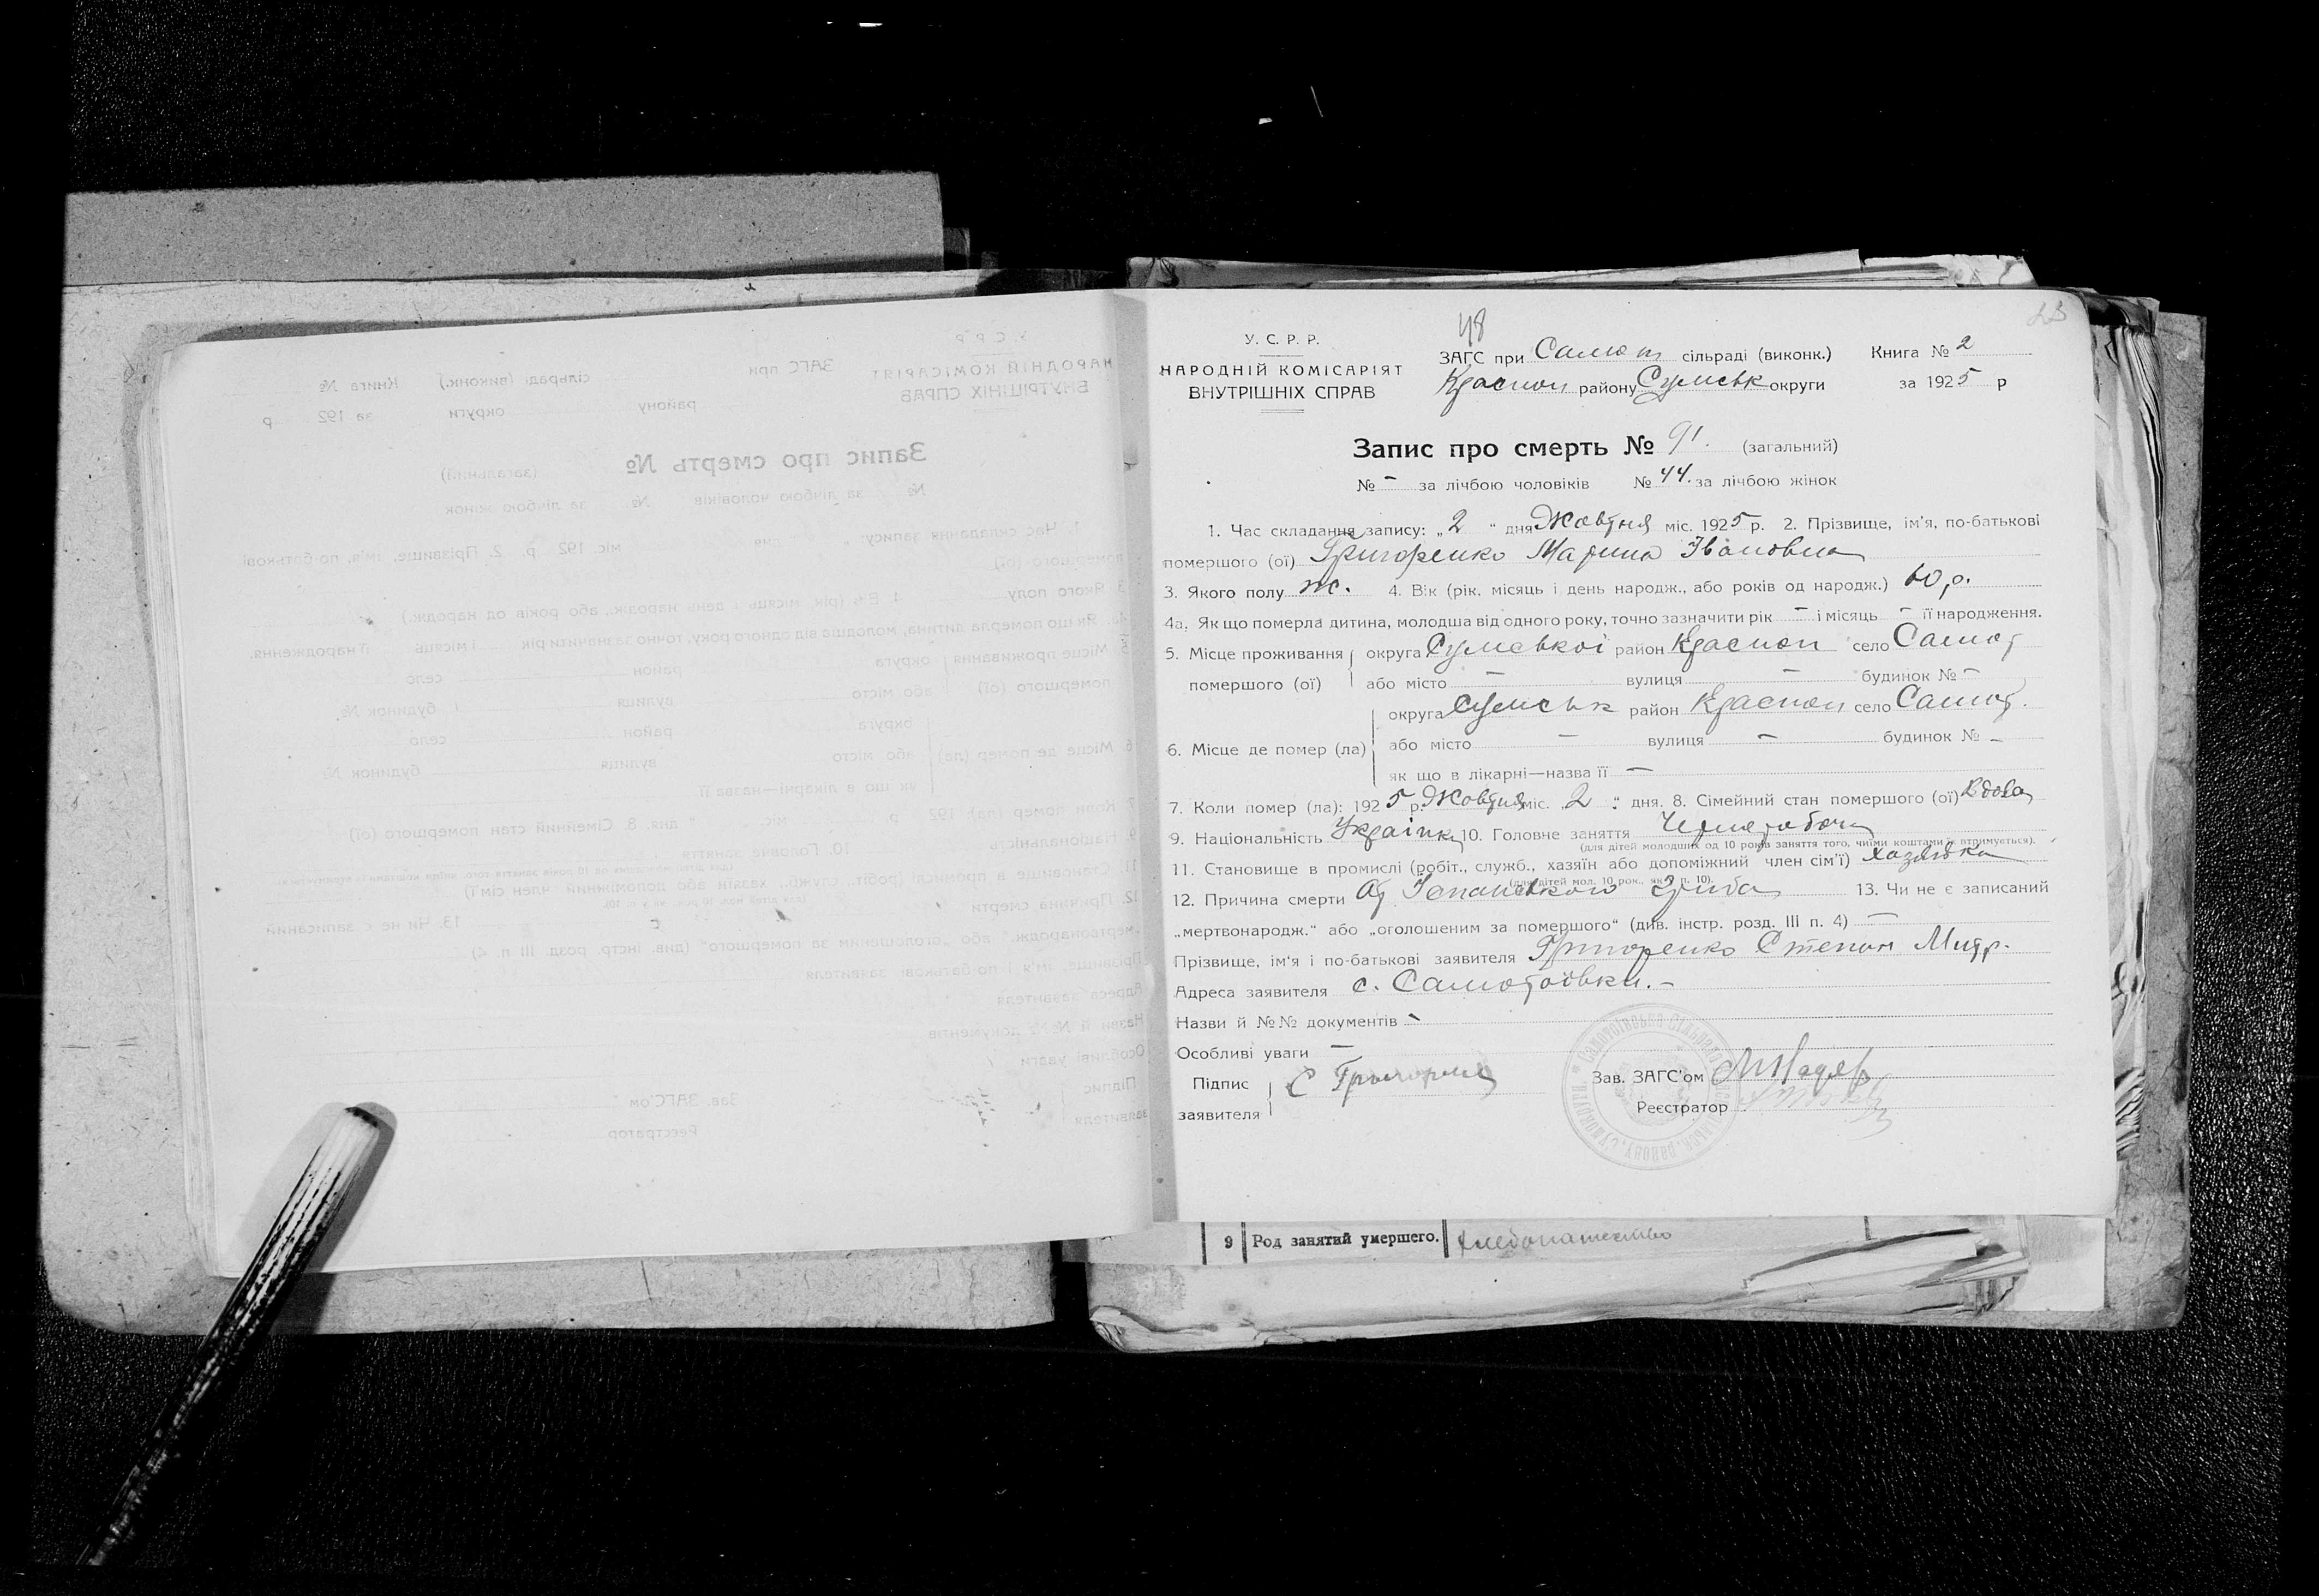 48
23
У. С. Р. Р.
НАРОДНІЙ КОМІСАРІЯТ
ВНУТРІШНІХ СПРАВ
ЗАГС при Самот сільраді (виконк.) Книга № 2
Краспол району Сумськ округи за 1925 р
Запис про смерть № 91. (загальний)
№ - за лічбою чоловіків № 44. за лічбою жінок
1. Час складання запису: „ 2 " дня Жовтня міс. 1925 р. 2. Прізвище, ім'я, по-батькові
помершого (ої) Григоренко Марина Івановна
3. Якого полу ж. 4. Вік (рік, місяць і день народж., або років од народж.) 60 р.
4а. Як що померла дитина, молодша від одного року, точно зазначити рік - і місяць - її народження.
5. Місце проживання помершого (ої) округа Сумської район Краспол село Самот
або місто - вулиця - будинок № -
6. Місце де помер (ла) округа Сумськ район Краспол село Самот.
або місто - вулиця - будинок № -
як що в лікарні—назва її -
7. Коли помер (ла): 1925 р. Жовтня міс. 2 " дня. 8. Сімейний стан помершого (ої) Вдова
9. Національність Українка 10. Головне заняття
(для дітей молодших од 10 років заняття того, чиїми коштами їх втримується).
11. Становище в промислі (робіт., служб., хазяїн або допоміжний член сім'ї) хазяйка
(для дітей мол. 10 рок., як у п. 10).
12. Причина смерти От Іспанської Гриба 13. Чи не є записаний
„мертвонародж." або „оголошеним за помершого" (див. інстр. розд. III п. 4) -
Прізвище, ім'я і по-батькові заявителя Григоренко Степан
Адреса заявителя с. Самотоївки. -
Назви й №№ документів -
Особливі уваги -
Підпис
заявителя С
Зав. ЗАГС'ом
Реєстратор
9 Род занятий умершего. хлебопашество